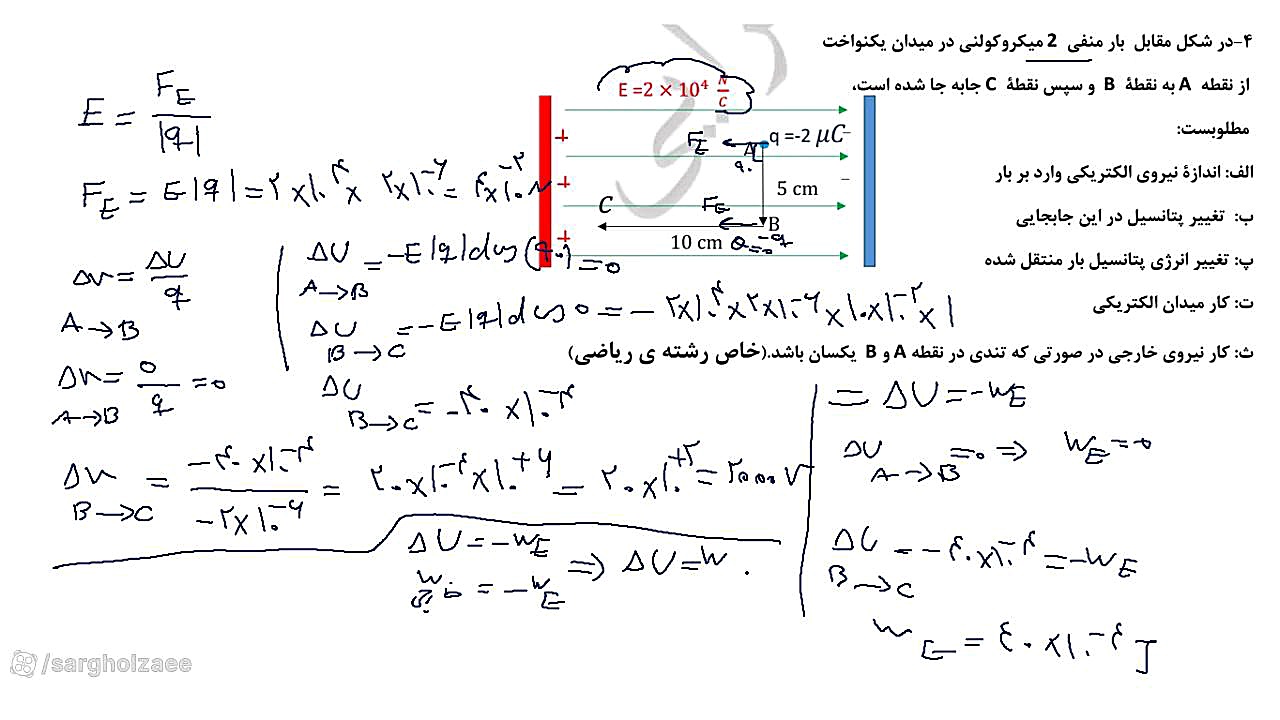 ۴-در شکل مقابل بار منفی 2 میکروکولنی در میدان یکنواخت
از نقطه A به نقطهٔ B و سپس نقطهٔ C جابه جا شده است،
مطلوبست:
الف: اندازهٔ نیروی الکتریکی وارد بر بار
ب: تغییر پتانسیل در این جابجایی
پ: تغییر انرژی پتانسیل بار منتقل شده
ت: کار میدان الکتریکی
ث: کار نیروی خارجی در صورتی که تندی در نقطه A و B یکسان باشد.(خاص رشته ی ریاضی)
E =2 × 10⁴ N/C
+
F_E
A
q =-2 μC
-
۹۰
+
5 cm
-
C
F_E
B
+
10 cm
θ=0
E = F_E / |q|
F_E = E|q| = ۲×۱۰^۴ × ۲×۱۰^-۶ = ۴×۱۰^-۲ N
Δv = ΔU / q
A→B
Δv = 0 / q = 0
A→B
ΔU = -E|q|d cos(۹۰) = 0
A→B
ΔU = -E|q|d cos 0 = - ۲×۱۰^۴ × ۲×۱۰^-۶ × ۱۰×۱۰^-۲ × ۱
B→C
ΔU = -۴۰ ×۱۰^-۴
B→C
Δv = -۴۰ ×۱۰^-۴ / -۲×۱۰^-۶ = ۲۰×۱۰^-۴×۱۰^+۶ = ۲۰×۱۰^+۲ = ۲۰۰۰ V
B→C
ΔU = -W_E
⇒ ΔU = W
= -W_E
= ΔU = -W_E
ΔU = 0 ⇒ W_E = 0
A→B
ΔU = -۴۰×۱۰^-۴ = -W_E
B→C
W_E = ۴۰ ×۱۰^-۴ J
/sargholzaee